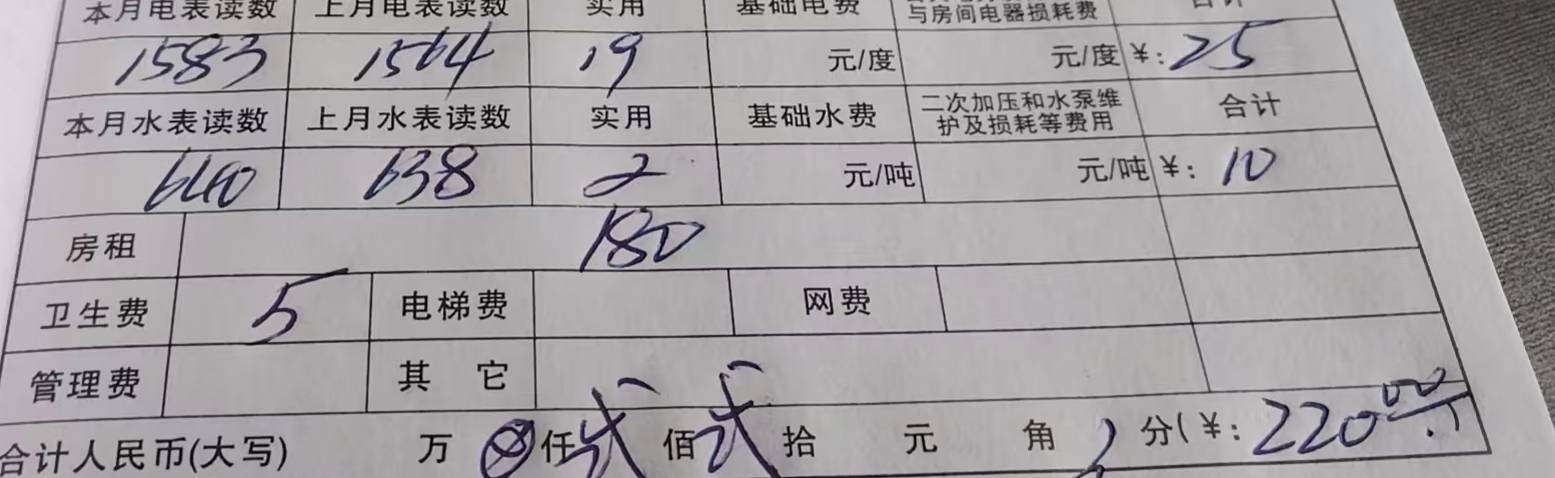 本月电表读数 上月电表读数 实用 基础电费 与房间电器损耗费 合计
1583 1564 19 元/度 元/度 ¥: 25
本月水表读数 上月水表读数 实用 基础水费 二次加压和水泵维护及损耗等费用 合计
640 638 2 元/吨 元/吨 ¥: 10
房租 180
卫生费 5 电梯费 网费
管理费 其它
合计人民币(大写) 万 仟 弍 佰 弍 拾 元 角 分(¥: 220.00